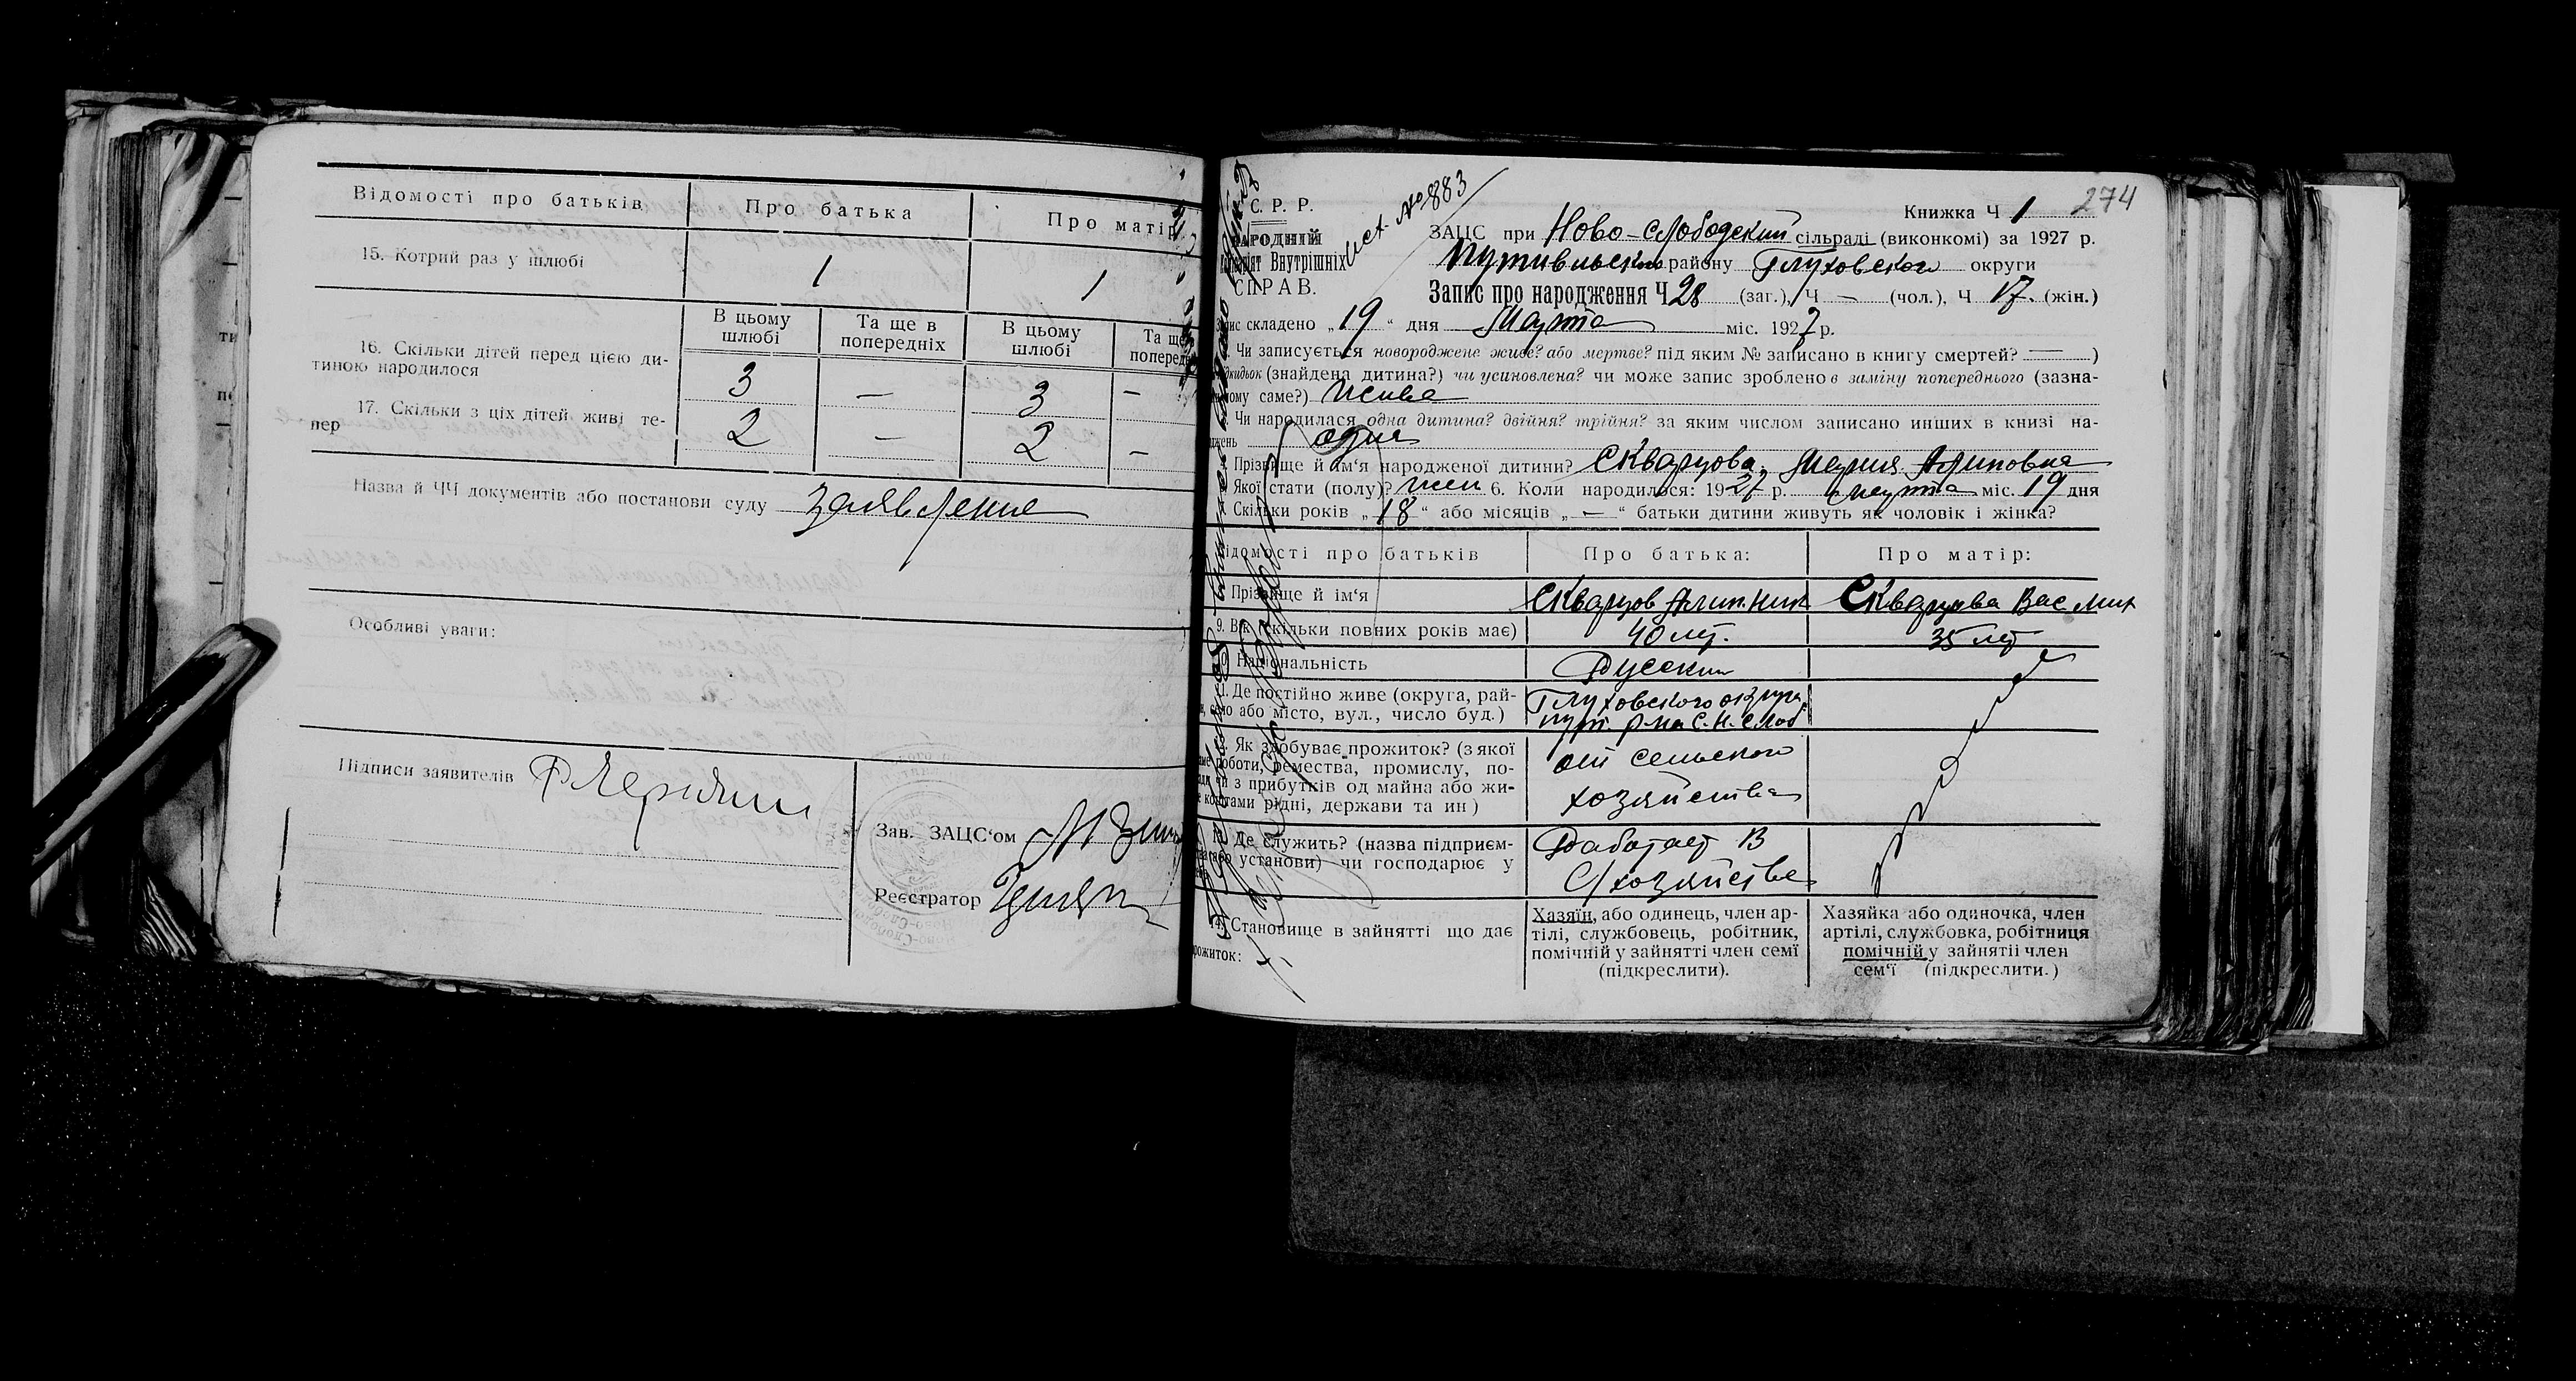 Відомості про батьків
Про батька
Про матір
15. Котрий раз у шлюбі
1
1
В цьому шлюбі
Та ще в попередніх
В цьому шлюбі
Та ще
поперед
16. Скільки дітей перед цією ди-
тиною народилося
3
—
3
—
17. Скільки з ціх дітей живі те-
пер
2
—
2
—
Назва й ЧЧ документів або постанови суду заявление
Особливі уваги:
Підписи заявителів
Зав. ЗАЦС‘ом
Реєстратор
С. Р. Р.
НАРОДНІЙ
Внутрішніх
СПРАВ.
№ 883
Книжка Ч 1
274
ЗАЦС при Ново-Слободский сільраді (виконкомі) за 1927 р.
Путивльского району Глуховского округи
Запис про народження Ч 28 (заг.), Ч — (чол.), Ч 17. (жін.)
складено „19“ дня Марта міс. 1927 р.
Чи записується новороджене живе? або мертве? під яким № записано в книгу смертей? —)
(знайдена дитина?) чи усиновлена? чи може запис зроблено в заміну попереднього (зазна-
ому саме?) живая
Чи народилася одна дитина? двійня? трійня? за яким числом записано инших в книзі на-
джень одна
Прізвище й ім‘я народженої дитини? Скварцова, Мария Алиповна
Якої стати (полу)? жен 6. Коли народилося: 1927 р. марта міс. 19 дня
Скільки років „18“ або місяців „—“ батьки дитини живуть як чоловік і жінка?
ідомості про батьків
Про батька:
Про матір:
Прізвище й ім‘я
Скварцов Алип. Ник
Скварцова Вас Мих
9. Вік (скільки повних років має)
40 лет.
35 лет
Національність
Русский
11. Де постійно живе (округа, рай-
село або місто, вул., число буд.)
Глуховского округа,
Пут. р-на С. Н. Слоб
Як здобуває прожиток? (з якої
роботи, ремества, промислу, по-
чи з прибутків од майна або жи-
коштами рідні, держави та ин )
от сельского
хозяйства
Де служить? (назва підприєм-
або установи) чи господарює у
Работает в
С/хозяйстве
14. Становище в зайнятті що дає
рожиток:
Хазяїн, або одинець, член ар-
тілі, службовець, робітник,
помічній у зайнятті член семї
(підкреслити).
Хазяйка або одиночка, член
артілі, службовка, робітниця
помічній у зайнятіі член
сем‘ї (підкреслити.)